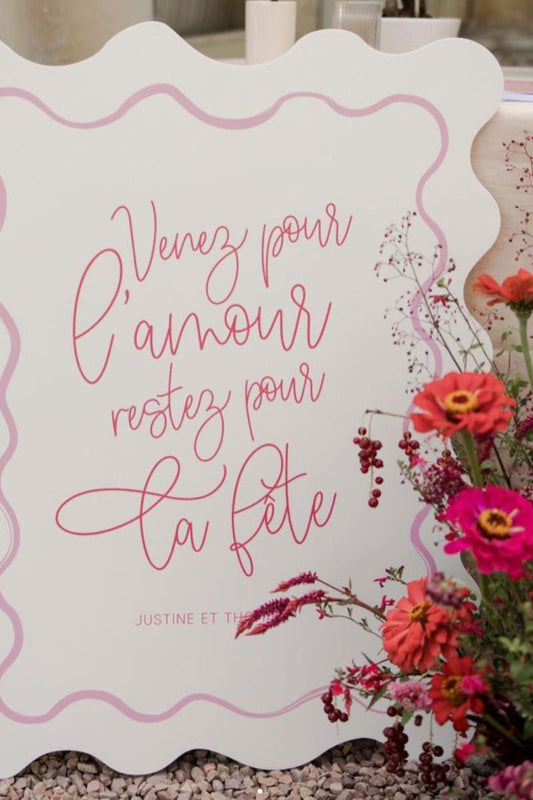 Venez pour
l'amour
restez pour
la fête
JUSTINE ET